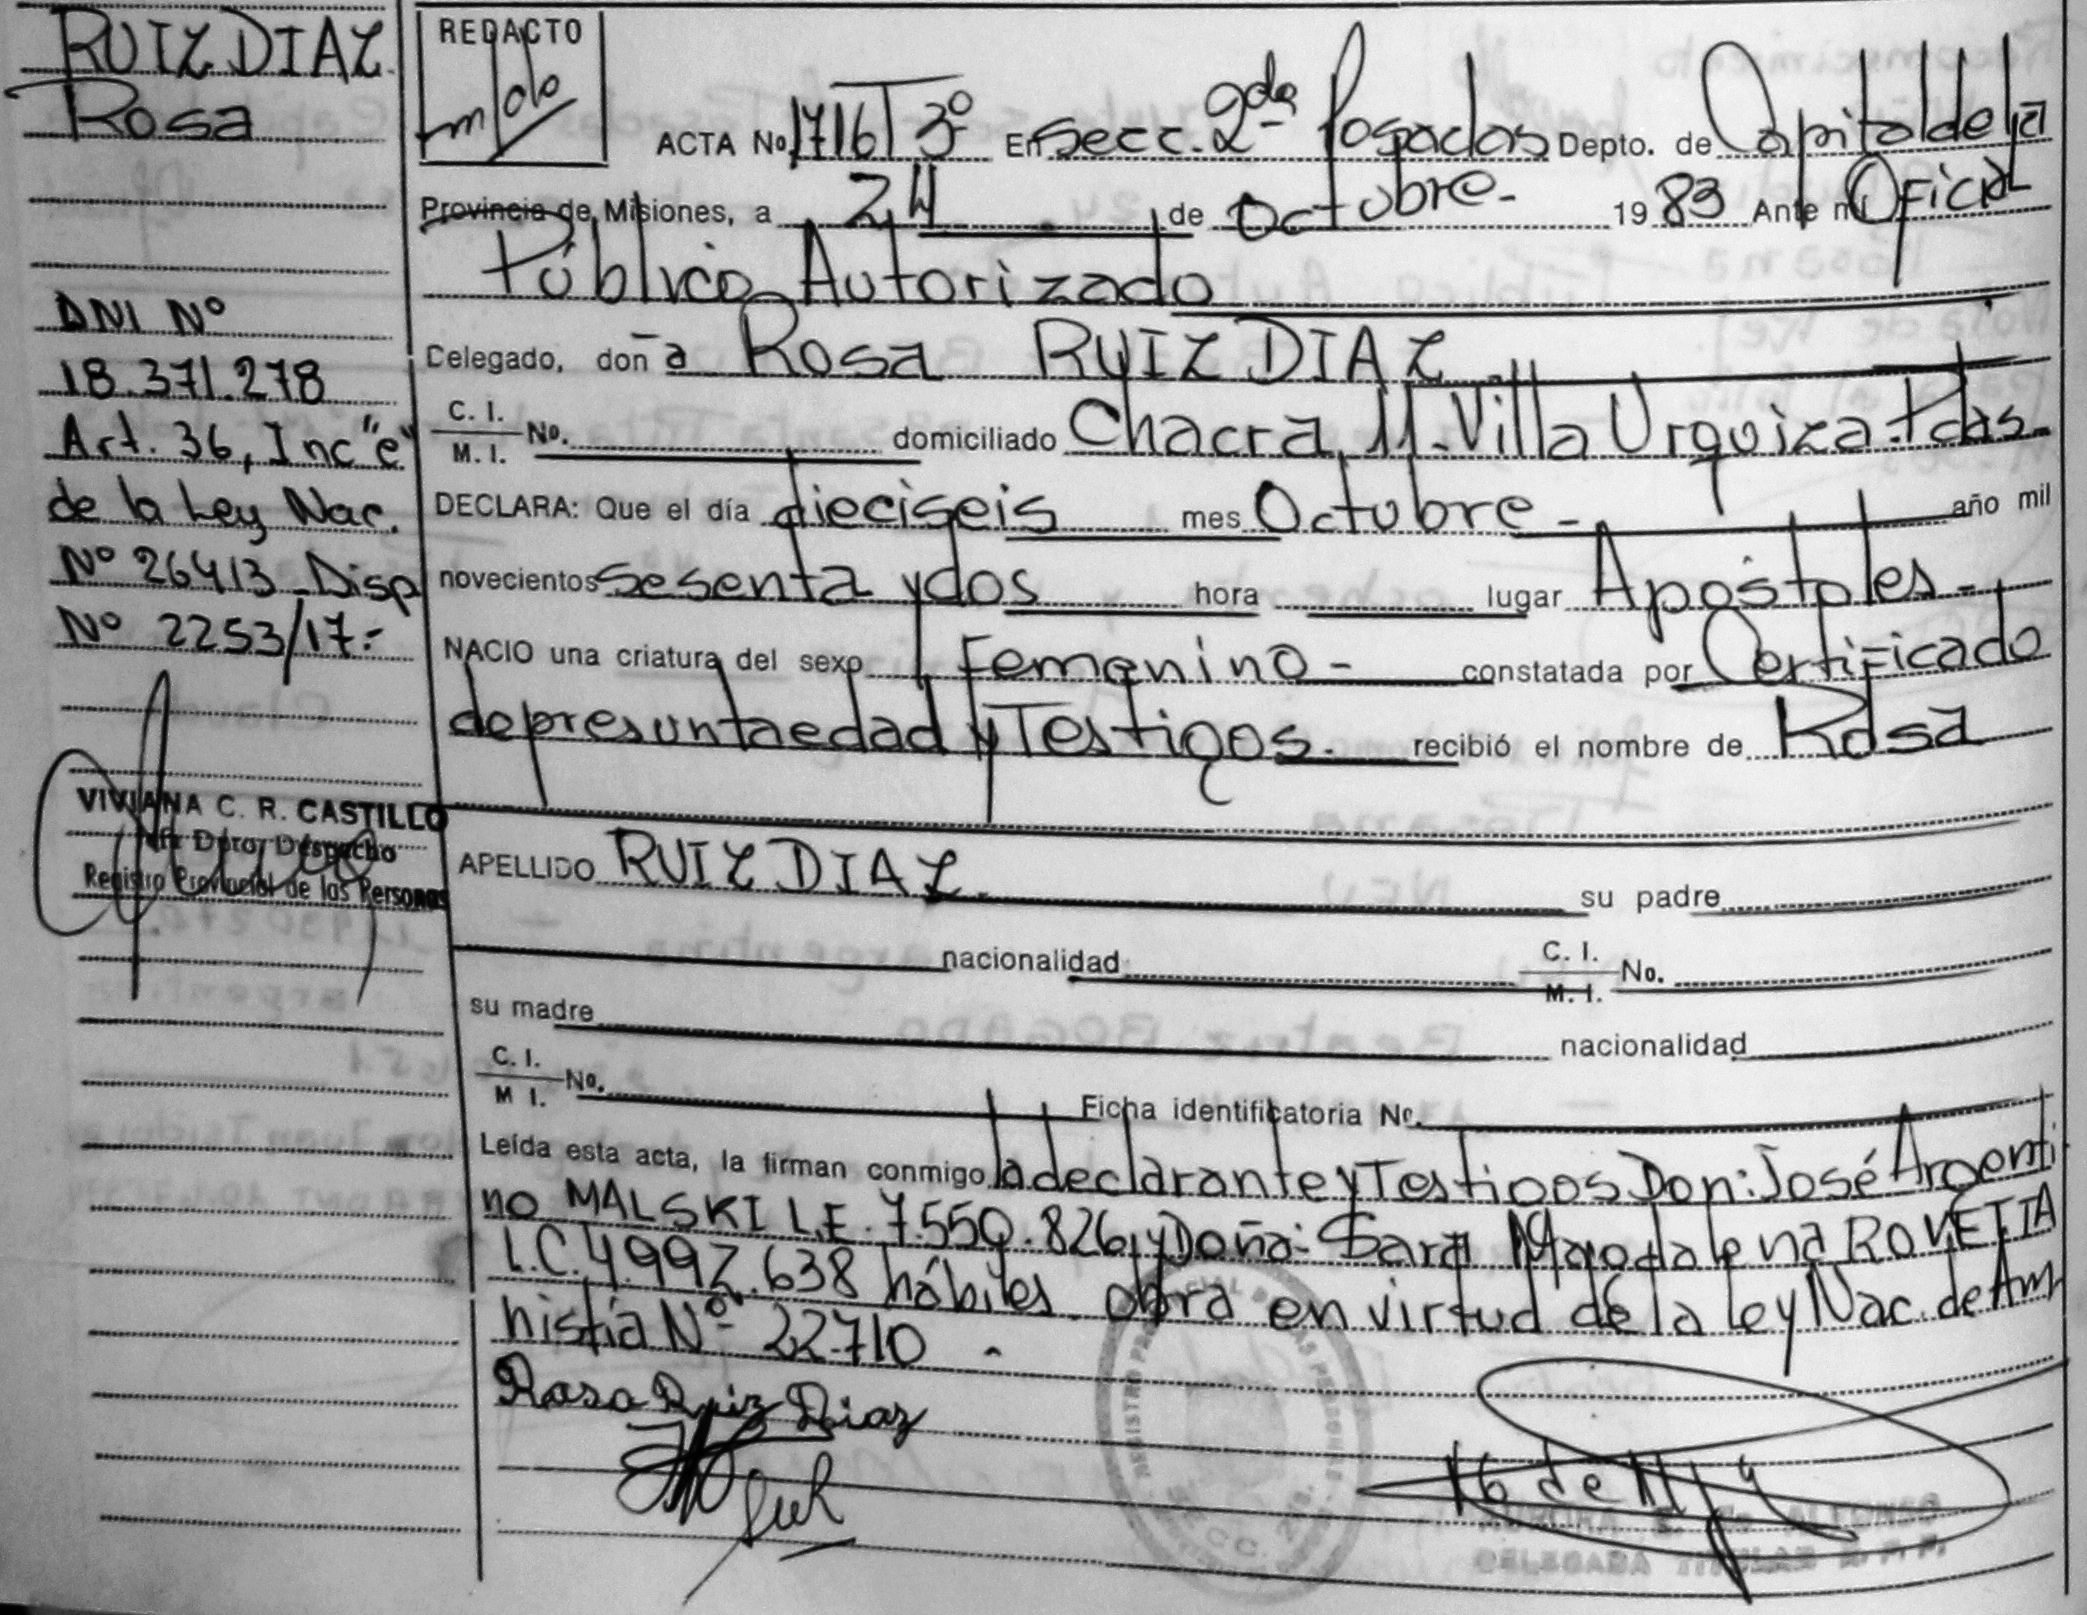 RUIZ DIAZ
Rosa
DNI Nº
18.371.278
Art. 36, Inc "e"
de la Ley Nac.
Nº 26413 - Disp
Nº 2253/17.-
VIVIANA C. R. CASTILLO
Jefe Dpto. Despacho
Registro Provincial de las Personas
REDACTO
ACTA No. 1716 T 3º En secc. 2da Posadas Depto. de Capital de la
Provincia de Misiones, a 24 de Octubre - 1983 Ante mi Oficial
Público Autorizado
Celegado, don a Rosa RUIZ DIAZ
C. I.
M. I. No. domiciliado Chacra 11 - Villa Urquiza - Pdas.
DECLARA: Que el día dieciseis mes Octubre - año mil
novecientos sesenta y dos hora lugar Apóstoles -
NACIO una criatura del sexo Femenino - constatada por Certificado
de presunta edad y Testigos. recibió el nombre de Rosa
APELLIDO RUIZ DIAZ. su padre
nacionalidad C. I. M. I. No.
su madre nacionalidad
C. I.
M I. No. Ficha identificatoria No.
Leída esta acta, la firman conmigo la declarante y Testigos Don: José Argenti
no MALSKI L.E. 7.550.826, y Doña: Sara Magdalena ROVETTA
L.C. 4.992.638 hábiles. obra en virtud de la ley Nac. de Am
nistía Nº 22.710.
Rosa Ruiz Diaz
REGISTRO PROVINCIAL DE LAS PERSONAS
SECC. 2da.
DELEGADA TITULAR R. P. P.